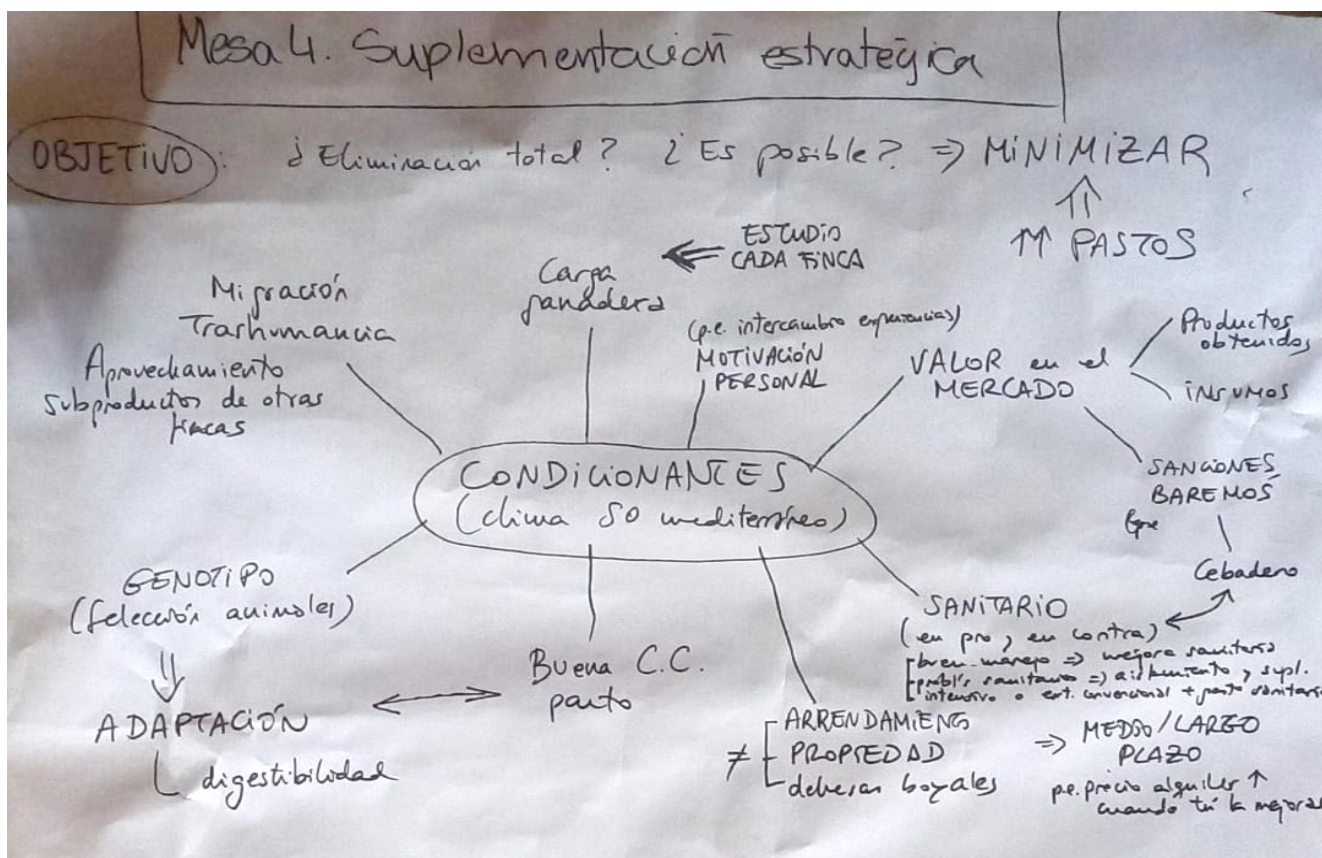 Mesa 4. Suplementación estratégica
OBJETIVO: ¿Eliminación total? ¿Es posible? ⇒ MINIMIZAR
⇑
↑↑ PASTOS
ESTUDIO
CADA FINCA
Carga
ganadera
Migración
Trashumancia
Aprovechamiento
subproductos de otras
fincas
(p.e. intercambio experiencias)
MOTIVACIÓN
PERSONAL
VALOR en el
MERCADO
Productos
obtenidos
INSUMOS
SANCIONES
BAREMOS
Cebadero
CONDICIONANTES
(clima SO mediterráneo)
GENOTIPO
(Selección animales)
⇓
ADAPTACIÓN
digestibilidad
Buena C.C.
parto
SANITARIO
(en pro, en contra)
buen manejo ⇒ mejora sanitaria
probl's sanitarios ⇒ aislamiento y supl.
intensivo o ext. convencional + gasto sanitario
≠
ARRENDAMIENTO
PROPIEDAD
dehesas boyales
⇒ MEDIO/LARGO
PLAZO
p.e. precio alquiler ↑
cuando tú la mejoras